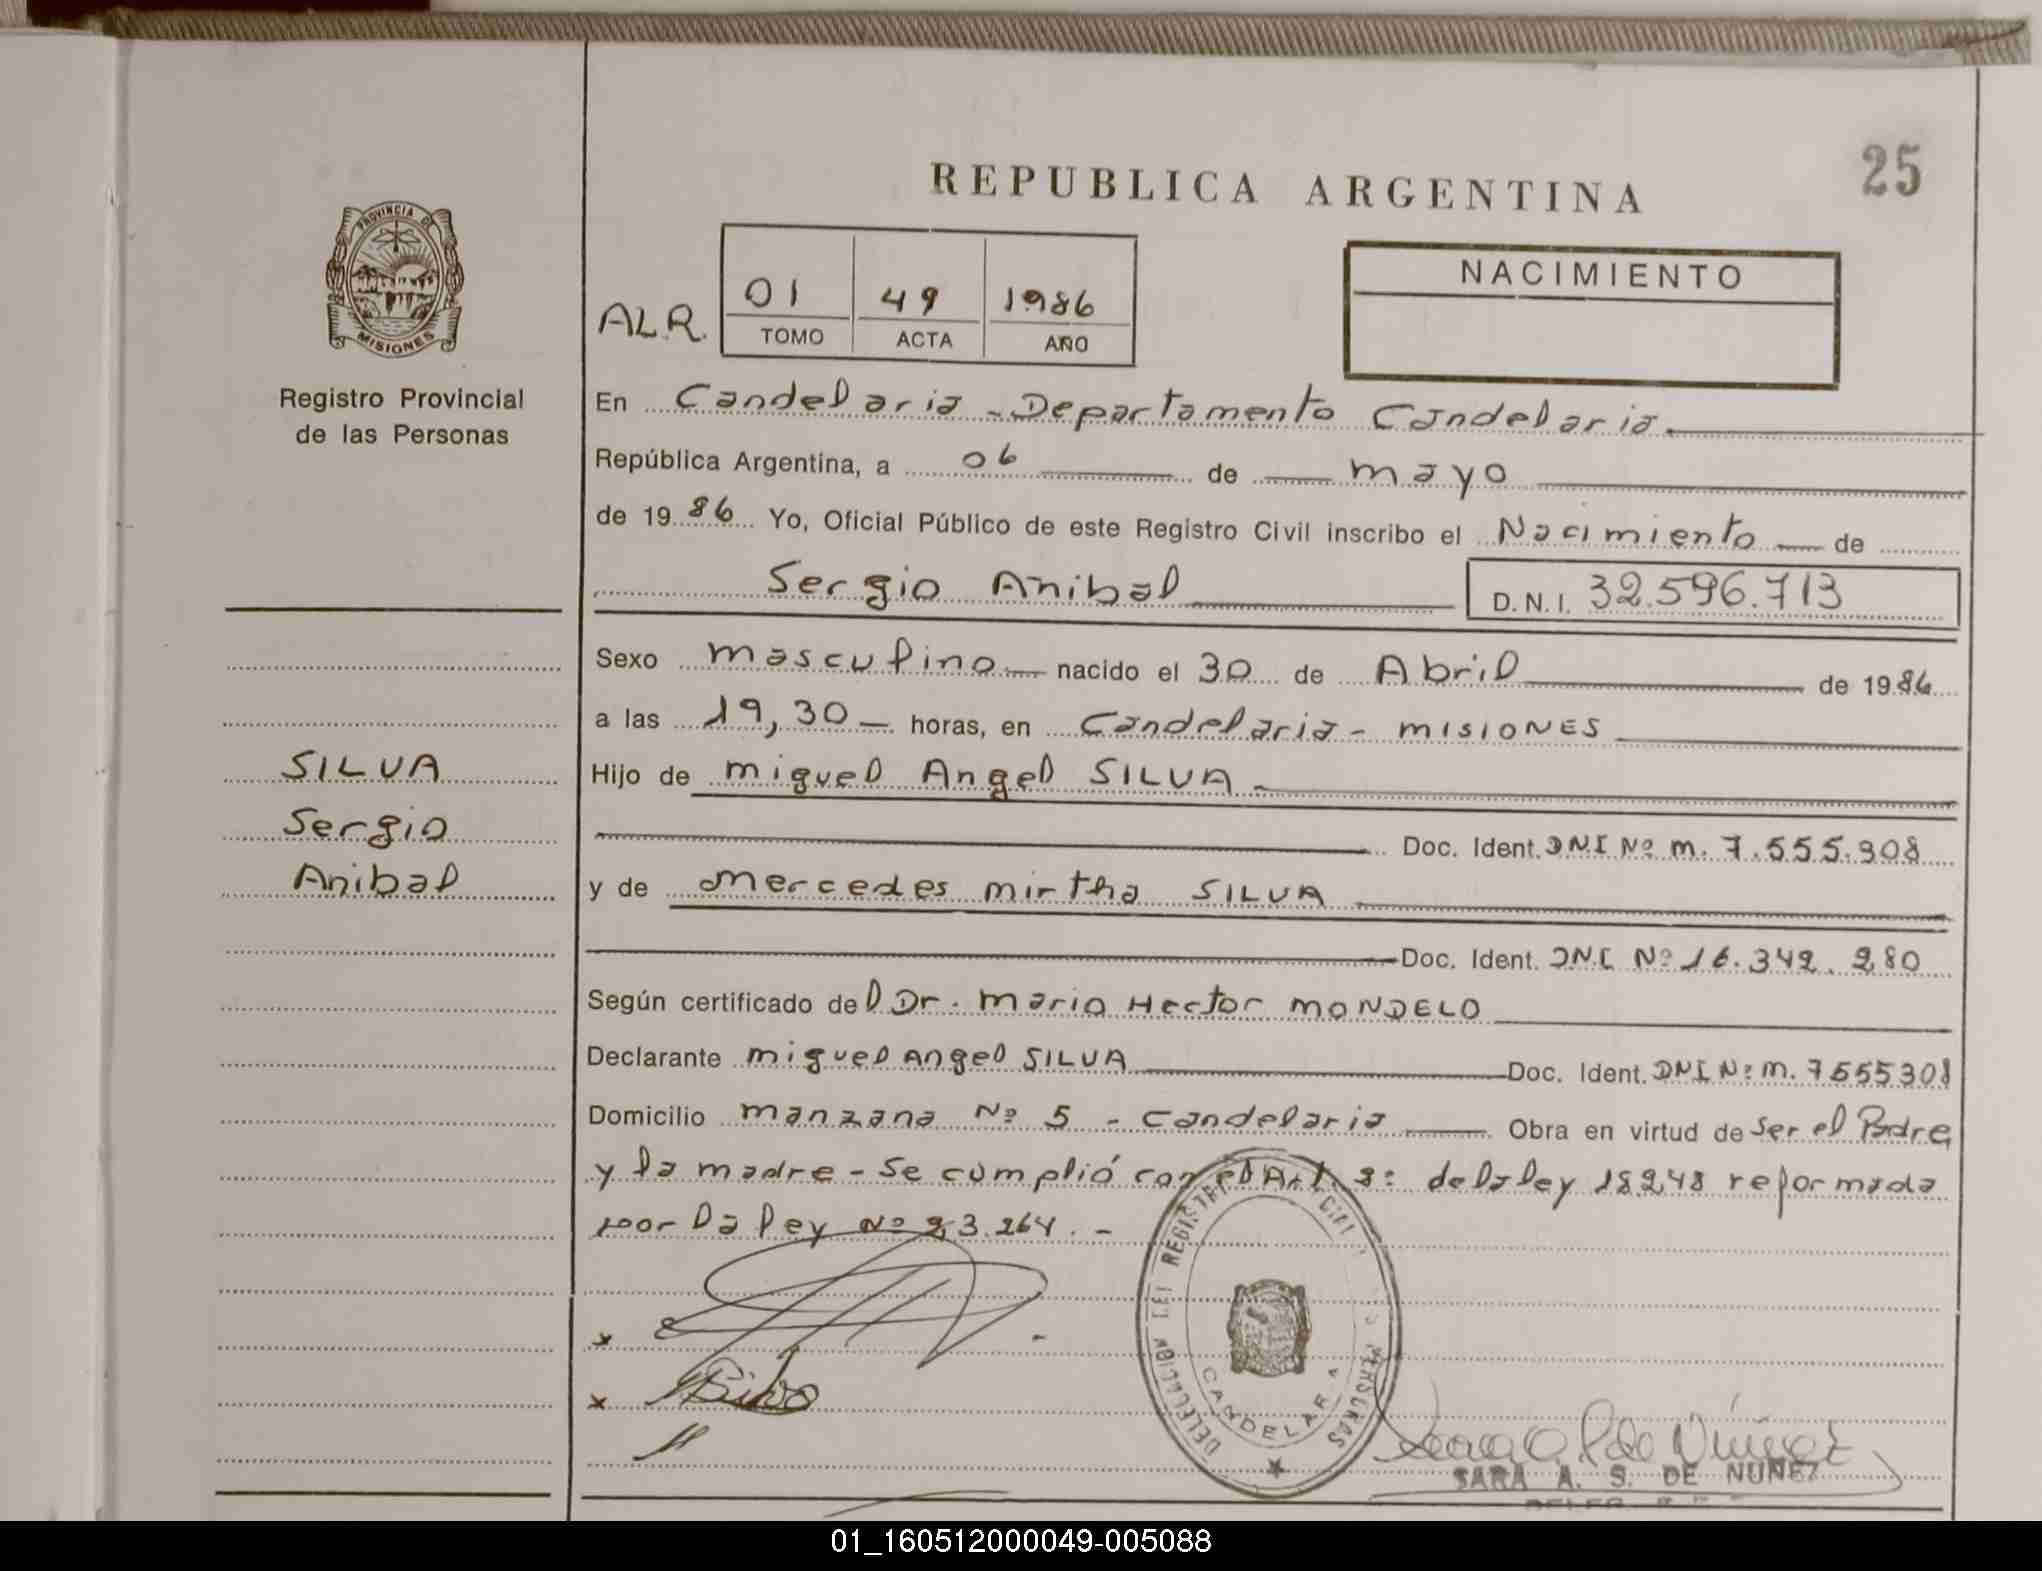 REPUBLICA ARGENTINA
25
PROVINCIA DE
MISIONES
Registro Provincial
de las Personas
NACIMIENTO
ALR.
01 49 1986
TOMO ACTA AÑO
En Candelaria - Departamento Candelaria.
República Argentina, a 06 de mayo
de 1986 Yo, Oficial Público de este Registro Civil inscribo el Nacimiento de
Sergio Anibal D.N.I. 32.596.713
Sexo masculino nacido el 30 de Abril de 1986
a las 19,30 horas, en Candelaria - MISIONES
Hijo de Miguel Angel SILVA
Doc. Ident. DNI Nº m. 7.555.308
y de Mercedes Mirtha SILVA
Doc. Ident. DNI Nº 16.342.280
Según certificado del Dr. Mario Hector MONDELO
Declarante Miguel Angel SILVA Doc. Ident. DNI Nº m. 7555308
Domicilio manzana Nº 5 - Candelaria Obra en virtud de ser el Padre
y la madre - Se cumplió con el Art. 2º de la ley 18248 reformada
por la ley Nº 23.264. -
SILVA
Sergio
Anibal
DELEGACION DEL REGISTRO PERSONAS
CANDELARIA
SARA A. S. DE NUÑEZ
01_160512000049-005088